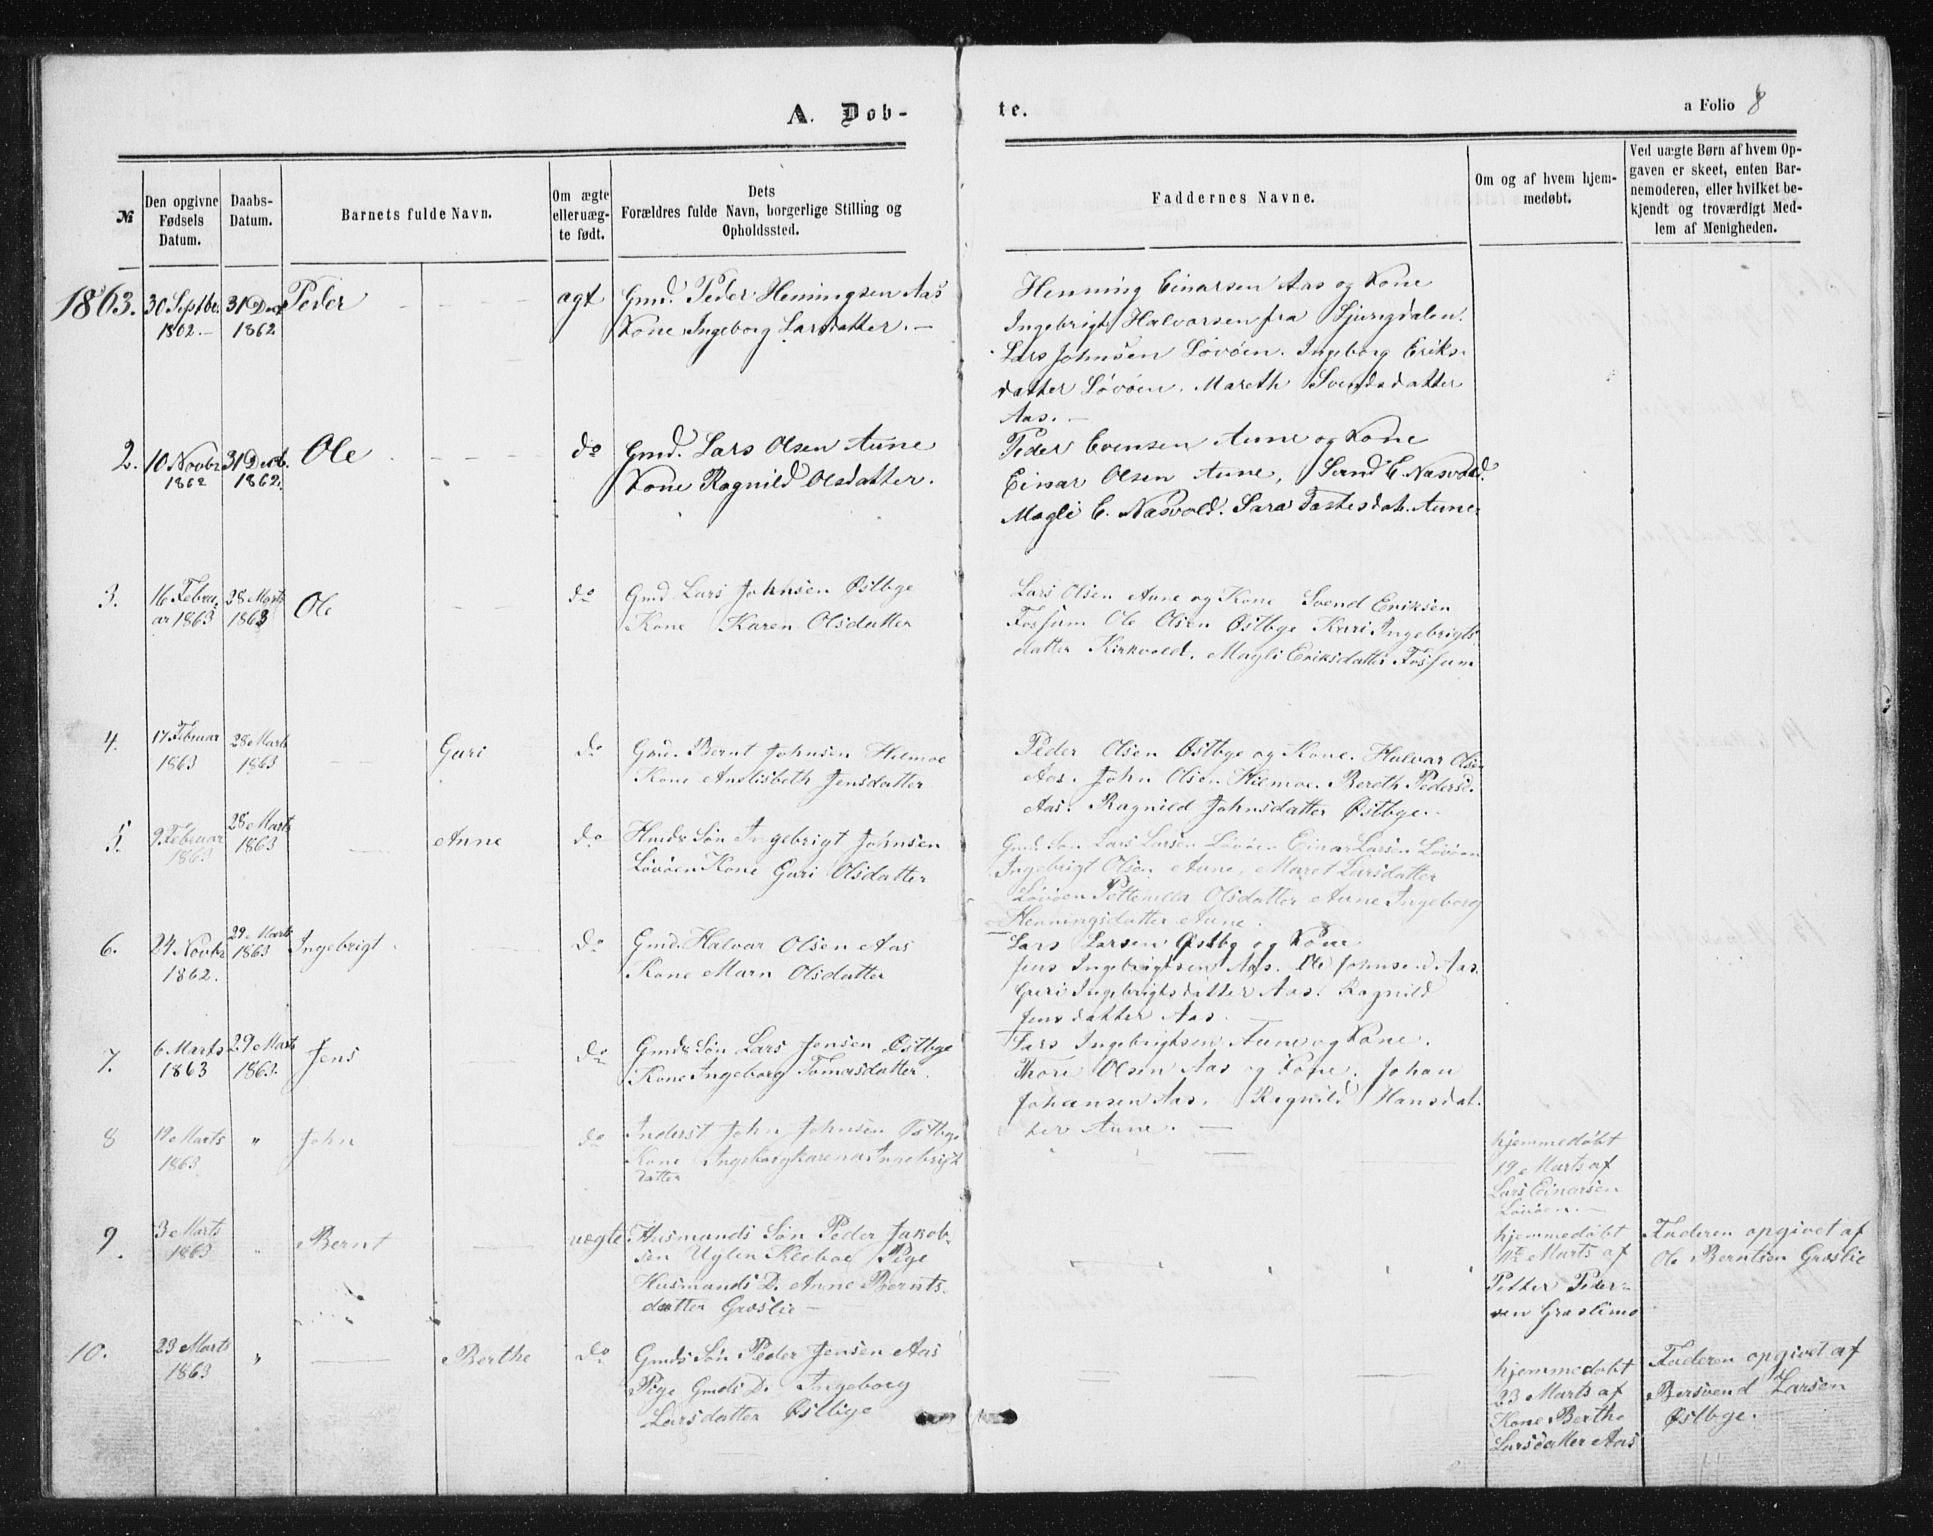 A. Døb-
te.
a Folio 8
№
Den opgivne
Fødsels
Datum.
Daabs-
Datum.
Barnets fulde Navn.
Om ægte
elleruæg-
te født.
Dets
Forældres fulde Navn, borgerlige Stilling og
Opholdssted.
Faddernes Navne.
Om og af hvem hjem-
medøbt.
Ved uægte Børn af hvem Op-
gaven er skeet, enten Bar-
nemoderen, eller hvilket be-
kjendt og troværdigt Med-
lem af Menigheden.
1863.
30 Septbr.
1862.
31 Decb
1862
Peder
ægt
Gmd. Peder Henningsen Aas
Kone Ingeborg Larsdatter. —
Henning Einarsen Aas og Kone
Ingebrigt Halvarsen fra
Lars Johnsen Løvøen. Ingeborg Eriks-
datter Løvøen. Mareth Svendsdatter
Aas. —
2.
10 Novbr
1862
31 Decb.
1862.
Ole
do
Gmd. Lars Olsen Aune
Kone Ragnild Olsdatter.
Peder Evensen Aune og Kone
Einar Olsen Aune, Svend E. Nasvold.
Magli E. Nasvold. Sara Aune
3.
16 Febru-
ar 1863
28 Marts
1863
Ole
do
Gmd. Lars Johnsen Østbye
Kone Karen Olsdatter
Lars Olsen Aune og Kone Svend Eriksen
Fossum Ole Olsen Østbye Kari Ingebrigts
datter Kirkvold. Magli Eriksdatter Fossum
4.
17 Februar
1863
28 Marts
1863
Guri
do
Gmd. Bernt Johnsen Hilmoe
Kone Anelisbeth Jensdatter
Peder Olsen Østbye og Kone. Halvar Olsen
Aas. John Olsen Hilmoe. Bereth Pedersd.
Aas. Ragnild Johnsdatter Østbye.
5.
9 Februar
1863
28 Marts
1863
Anne
do
Hmds Søn Ingebrigt Johnsen
Løvøen Kone Guri Olsdatter
Gmds Søn Lars Larsen Løvøen Einar Larsen Løvøen
Ingebrigt Olsen Aune, Maret Larsdatter
Løvøen Olsdatter Aune Ingeborg
Henningsdatter Aune.
6.
24 Novbr
1862.
29 Marts
1863
Ingebrigt
do
Gmd. Halvar Olsen Aas
Kone Marn Olsdatter
Lars Larsen Østby og Kone
Jens Ingebrigtsen Aas. Ole Johnsen Aas.
Guri Ingebrigtsdatter Aas. Ragnild
Jensdatter Aas. —
7.
6 Marts
1863
29 Marts
1863.
Jens
do
Gmds Søn Lars Jensen Østbye
Kone Ingeborg Tomasdatter.
Lars Ingebrigtsen Aune og Kone.
Thore Olsen Aas og Kone. Johan
Johansen Aas. Ragnild Hansdat-
ter Aune. —
8
19 Marts
1863
"
John
do
Inderst John Johnsen Østbye
Kone Ingeborgkarena Ingebrigt
datter
hjemmedøbt
19 Marts af
Lars Einarsen
Løvøen. —
9
3 Marts
1863
"
Bernt
uægte
Husmands Søn Peder Jakob-
sen Uglen Kleboe Pige
Husmands D. Anne Bernts-
datter Græslie —
hjemmedøbt
Marts af
Petter Peder-
sen Græslimo
Faderen opgivet af
Ole Berntsen Græslie
10.
23 Marts
1863
"
Berthe
do
Gmds Søn Peder Jensen Aas
Pige Gmds D. Ingeborg
Larsdatter Østbye
hjemmedøbt
23 Marts af
Kone Berthe
Larsdatter Aas
Faderen opgivet af
Bersvend Larsen
Østbye.